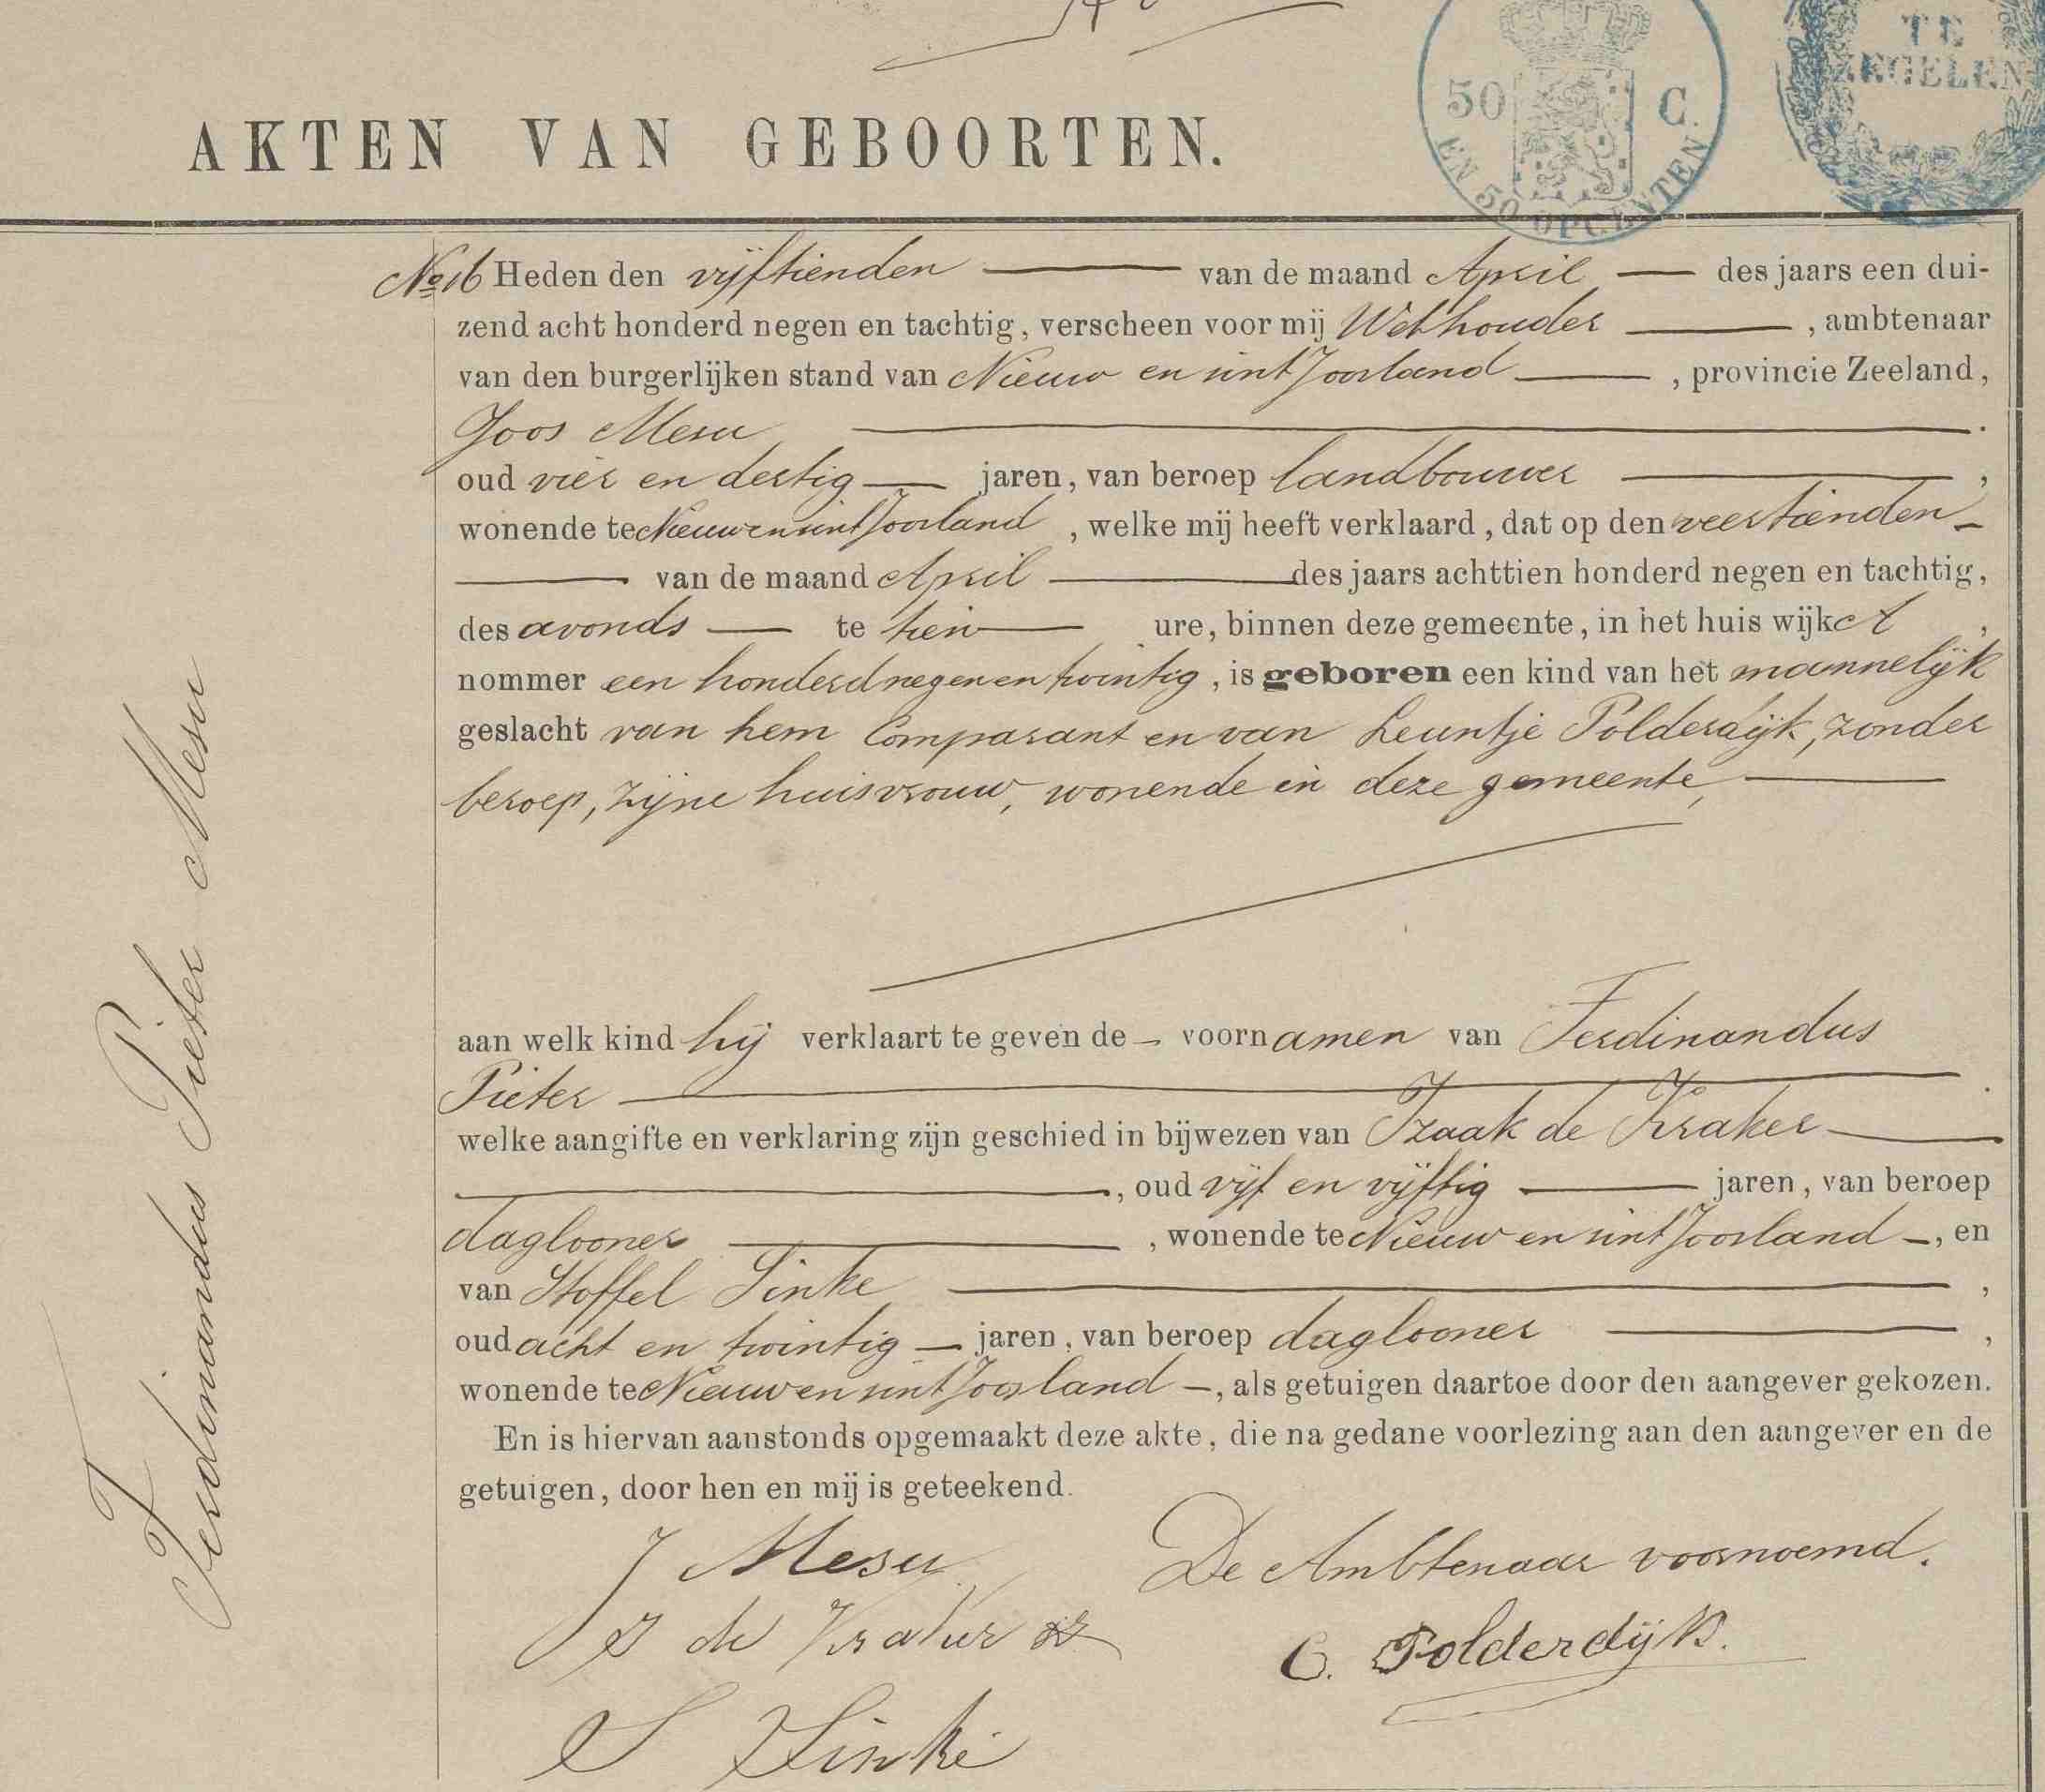 50 C.
EN 50 OPCENTEN
TE
ZEGELEN
AKTEN VAN GEBOORTEN.
No 16 Heden den vijftienden van de maand April des jaars een dui-
zend acht honderd negen en tachtig, verscheen voor mij Wethouder, ambtenaar
van den burgerlijken stand van Nieuw en sint Joosland, provincie Zeeland,
Joos Mesu.
oud vier en dertig jaren, van beroep landbouwer,
wonende te Nieuw en sint Joosland, welke mij heeft verklaard, dat op den veertienden
van de maand April des jaars achttien honderd negen en tachtig,
des avonds te tien ure, binnen deze gemeente, in het huis wijk A,
nommer een honderd negen en twintig, is geboren een kind van het mannelijk
geslacht van hem Comparant en van Leuntje Polderdijk, zonder
beroep, zijne huisvrouw, wonende in deze gemeente,
aan welk kind hij verklaart te geven de voornamen van Ferdinandus
Pieter.
welke aangifte en verklaring zijn geschied in bijwezen van Izaak de Kraker
, oud vijf en vijftig jaren, van beroep
daglooner, wonende te Nieuw en sint Joosland, en
van Stoffel Sinke,
oud acht en twintig jaren, van beroep daglooner,
wonende te Nieuw en sint Joosland, als getuigen daartoe door den aangever gekozen.
En is hiervan aanstonds opgemaakt deze akte, die na gedane voorlezing aan den aangever en de
getuigen, door hen en mij is geteekend.
J Mesu
De Ambtenaar voornoemd.
I de Kraker
C. Polderdijk.
S Sinke
Ferdinandus Pieter Mesu